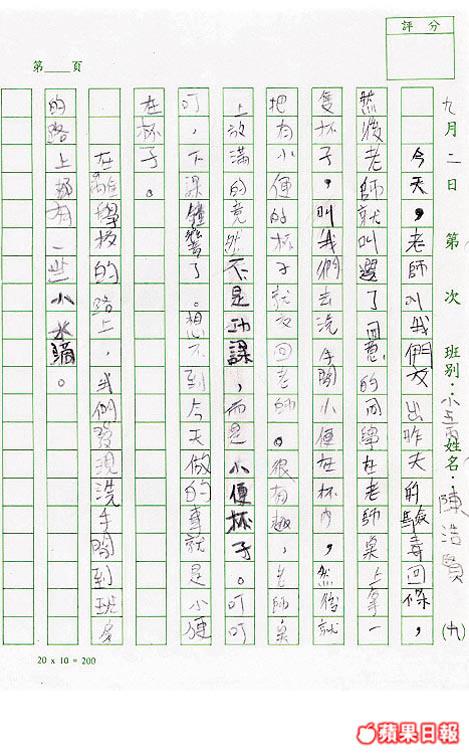 評分
九月二日 第 次 班別：小五丙 姓名：陳浩賢 (九)
今天，老師叫我們交出昨天的驗毒回條，
然後老師就叫選了同意的同學在老師桌上拿一
隻杯子，叫我們去洗手間小便在杯內，然後就
把有小便的杯子就交回老師。很有趣，老師桌
上放滿的竟然不是功課，而是小便杯子。叮叮
叮，下課鐘響了。想不到今天做的事就是小便
在杯子。
在離學校的路上，我們發現洗手間到班房
的路上都有一些小水。
第 頁
20 x 10 = 200
蘋果日報